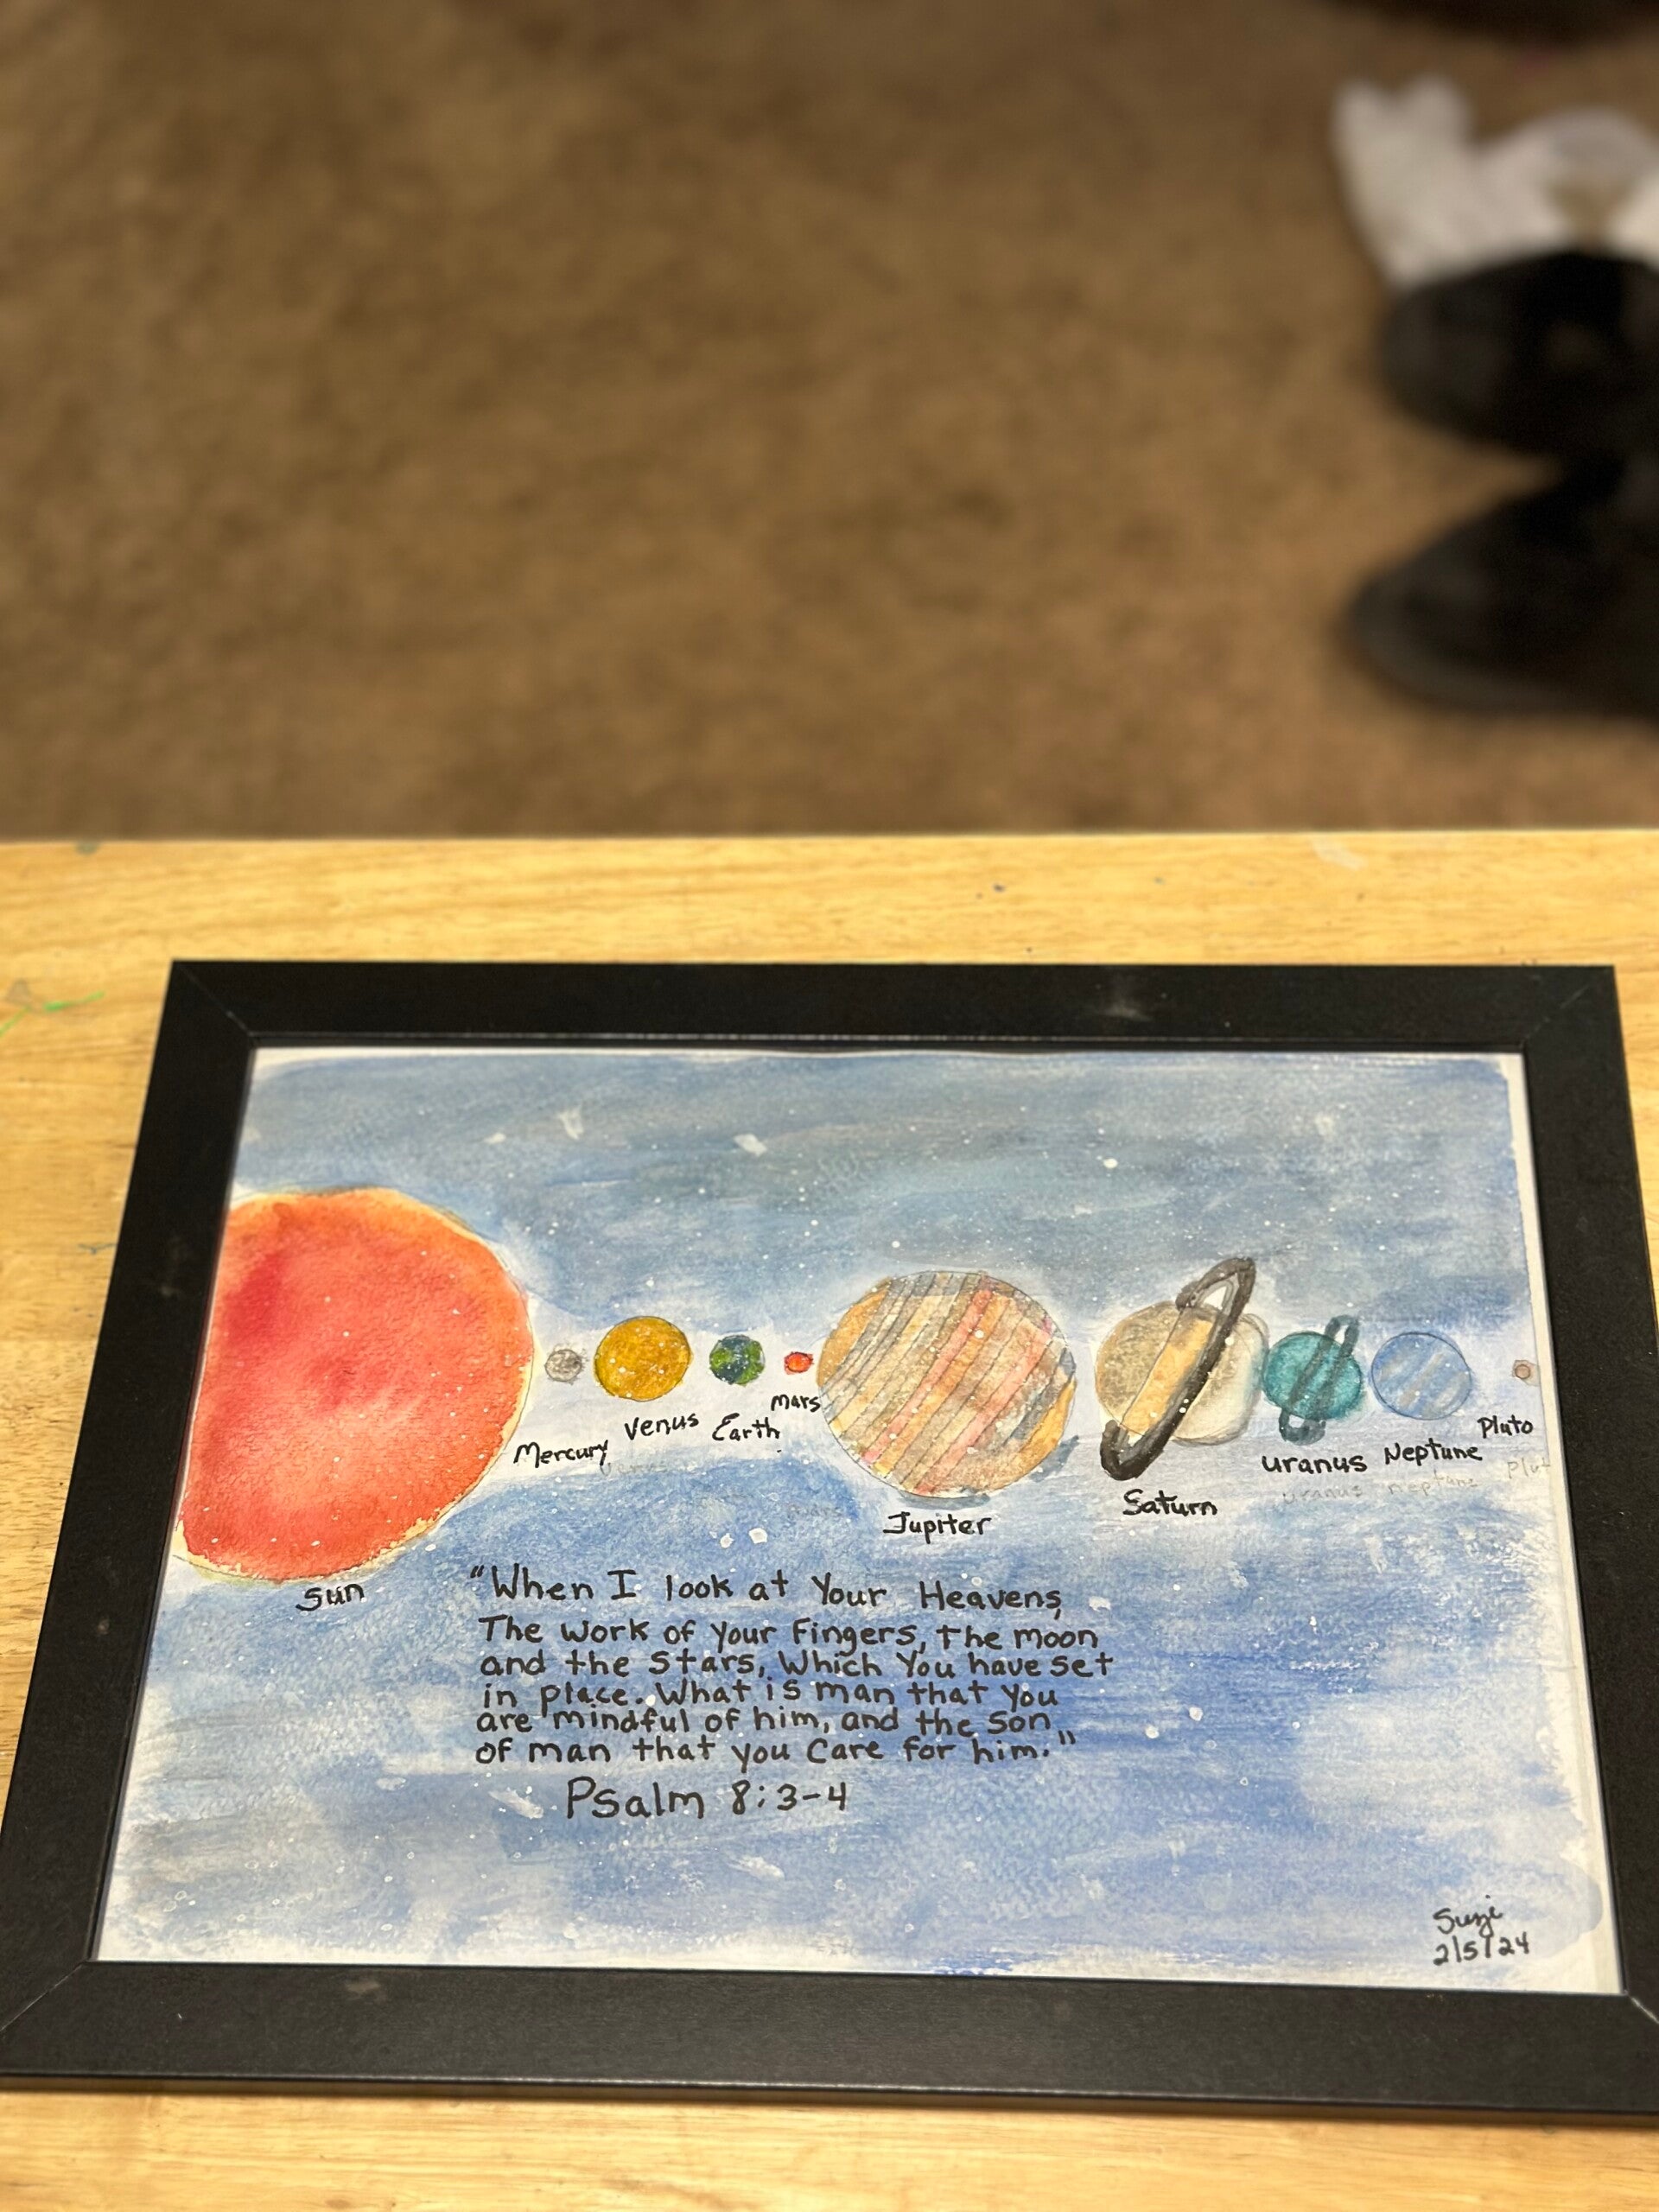 Mars
Venus
Earth
Pluto
Mercury
Uranus
Neptune
Saturn
Jupiter
Sun
"When I look at Your Heavens,
The work of Your Fingers, the moon
and the Stars, Which You have set
in place. What is man that you
are mindful of him, and the Son
of man that you Care for him."
Psalm 8:3-4
Suzi
2/5/24